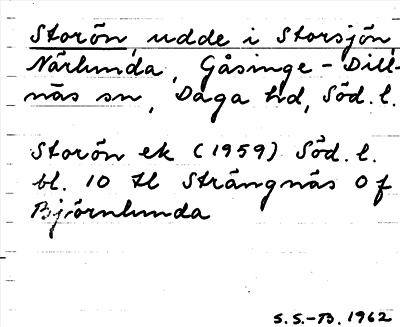 Storön, udde i Storsjön,
Närlunda, Gåsinge-Dill-
näs sn, Daga hd, Söd. l.
Storön ek (1959) Söd. l.
bl. 10 tl Strängnäs Of
Björnlunda
S.S.-B. 1962